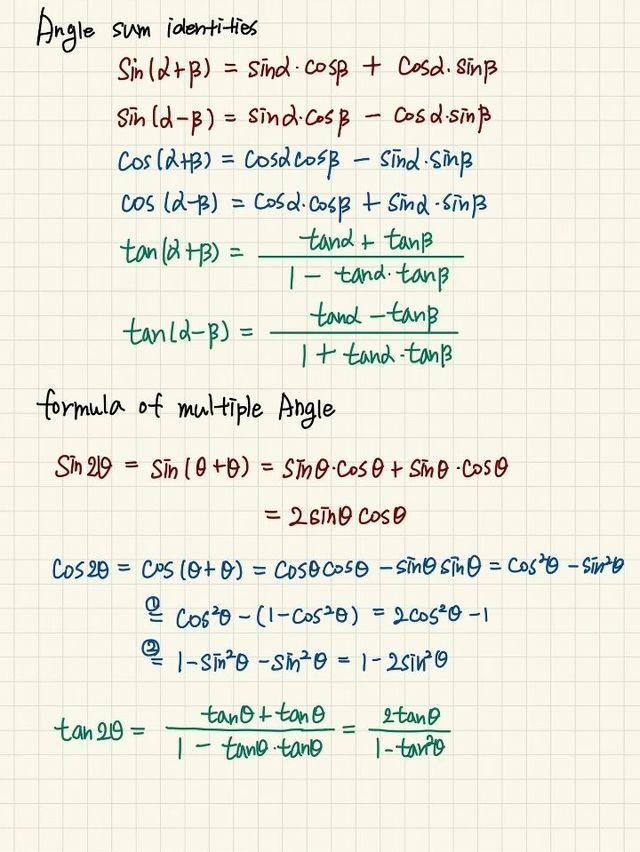 Angle sum identities
Sin(α+β) = sinα·cosβ + cosα·sinβ
sin(α-β) = sinα·cosβ - cosα·sinβ
cos(α+β) = cosαcosβ - sinα·sinβ
cos(α-β) = cosα·cosβ + sinα·sinβ
tan(α+β) = (tanα + tanβ) / (1 - tanα·tanβ)
tan(α-β) = (tanα - tanβ) / (1 + tanα·tanβ)
formula of multiple Angle
Sin2θ = sin(θ+θ) = sinθ·cosθ + sinθ·cosθ
= 2sinθcosθ
cos2θ = cos(θ+θ) = cosθcosθ - sinθsinθ = cos²θ - sin²θ
① = cos²θ - (1-cos²θ) = 2cos²θ - 1
② = 1 - sin²θ - sin²θ = 1 - 2sin²θ
tan2θ = (tanθ + tanθ) / (1 - tanθ·tanθ) = 2tanθ / (1-tan²θ)